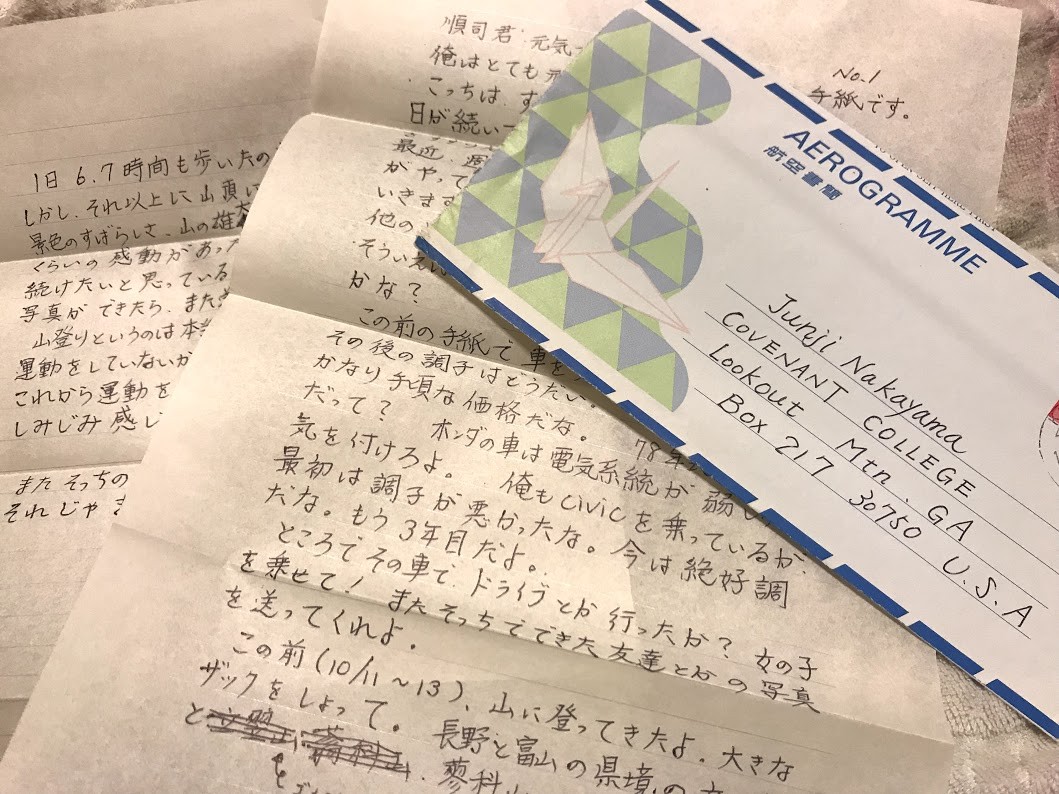 No.1
手紙です。
順司君.元気
俺はとても元
こっちは、す
日が続い
最近
がやって
いきます
他の
そういえ
かな?
この前の手紙で 車を
その後の調子はどうだい。
かなり手頃な価格だな。 78年
だって? ホンダの車は電気系統が弱
気を付けろよ。 俺もcivicを乗っているが、
最初は調子が悪かったな。今は絶好調
だな。もう3年目だよ。
ところでその車で、ドライブとか行ったか? 女の子
を乗せて! またそっちでできた友達とかの写真
を送ってくれよ。
この前(10/11~13)、山に登ってきたよ。大きな
ザックをしょって。 長野と富山の県境の
と 蓼科
1日 6.7時間も歩いたの
しかし、それ以上に山頂
景色のすばらしさ、山の雄大
くらいの感動があった
続けたいと思っている
写真ができたら、また
山登りというのは本当
運動をしていないか
これから運動を
しみじみ感じ
またそっちの
それじゃ
AEROGRAMME
航空書簡
Junji Nakayama
COVENANT COLLEGE
Lookout Mtn. GA
Box 217 30750 U.S.A